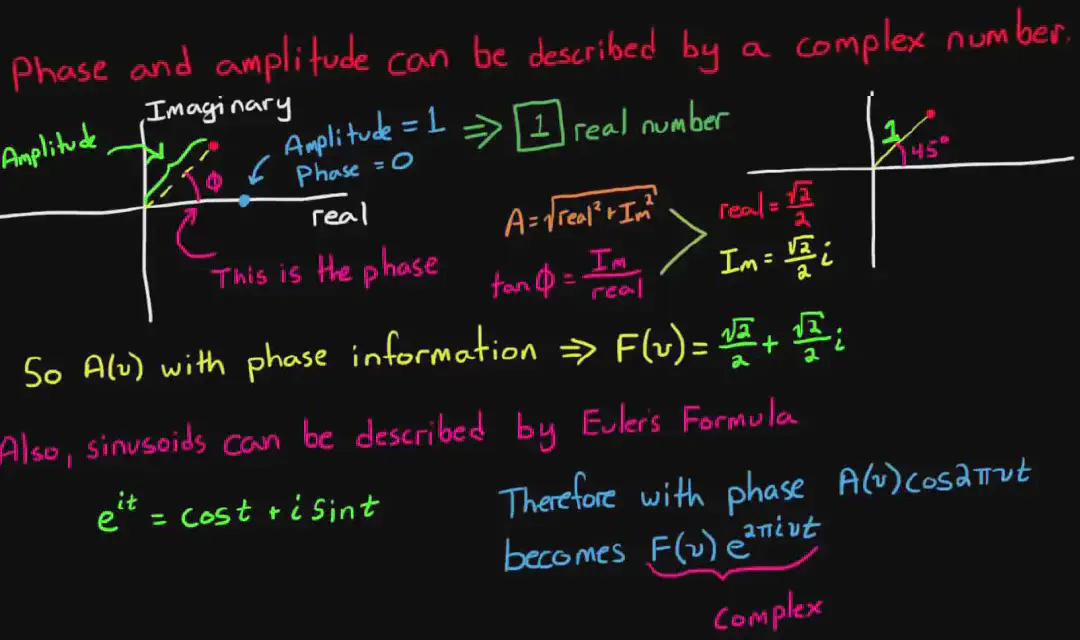 Phase and amplitude can be described by a complex number.
Imaginary
Amplitude
Amplitude = 1
Phase = 0
⇒ 1 real number
1
45°
ϕ
real
This is the phase
A = √real² + Im²
tan ϕ = Im/real
real = √2/2
Im = √2/2 i
So A(υ) with phase information ⇒ F(υ) = √2/2 + √2/2 i
Also, sinusoids can be described by Euler's Formula
e^{it} = cost + i sint
Therefore with phase A(υ)cos2πυt
becomes F(υ) e^{2πiυt}
Complex